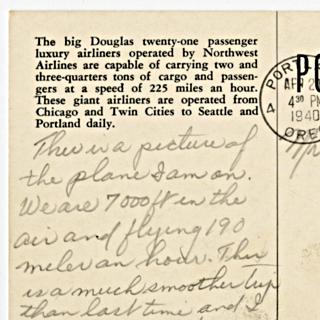 The big Douglas twenty-one passenger
luxury airliners operated by Northwest
Airlines are capable of carrying two and
three-quarters tons of cargo and passen-
gers at a speed of 225 miles an hour.
These giant airliners are operated from
Chicago and Twin Cities to Seattle and
Portland daily.
This is a picture of
the plane I am on.
We are 7000 ft in the
air and flying 190
miles an hour. This
is a much smoother trip
than last time and I
PO
PORT
APR 2
4 30 PM
1940
ORE